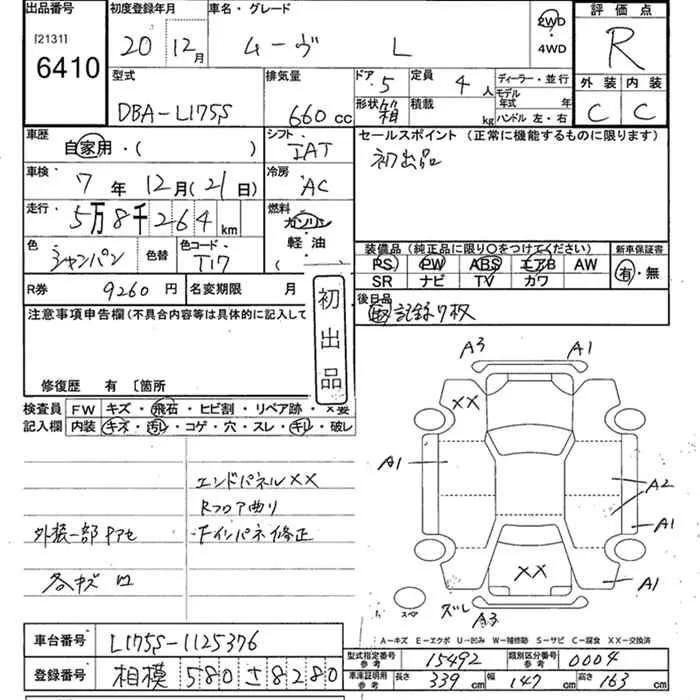 出品番号 初度登録年月 車名・グレード 評価点
[2131] 6410 20 12月 ムーヴ L 2WD ・ 4WD R
型式 排気量 ドア 5 定員 4人 ディーラー・並行 外装 内装
DBA-L175S 660cc 形状 箱 積載 kg モデル年式 年 ハンドル 左・右 C C
車歴 自家用・( ) シフト IAT セールスポイント (正常に機能するものに限ります)
初出品
車検 7年 12月(21日) 冷房 AC
走行 5万8千264km 燃料 ガソリン 軽油 ( 
色 シャンパン 色替 色コード T17 装備品 (純正品に限り○をつけてください) 新車保証書
PS PW ABS エアB AW 有・無
SR ナビ TV カワ
R券 9260円 名変期限 月 後日品
記録 7枚
注意事項申告欄(不具合内容等は具体的に記入して
初出品
修復歴 有 〔箇所
A3 A1
検査員 FW キズ・飛石・ヒビ割・リペア跡・×要
記入欄 内装 キズ・汚レ・コゲ・穴・スレ・キレ・破レ
XX
A1
エンドパネルXX A2
Rフロア曲り
外装一部 Pアセ ・Fインパネ修正 A1
各キズ XX A1
スペ ズレ A3
A-キズ E-エクボ U-凹み W-補修跡 S-サビ C-腐食 XX-交換済
車台番号 L175S-1125376
型式指定番号 参考 15492 類別区分番号 参考 0004
登録番号 相模 580 さ 8280
車庫証明用 参考 長さ 339cm 幅 147cm 高さ 163cm